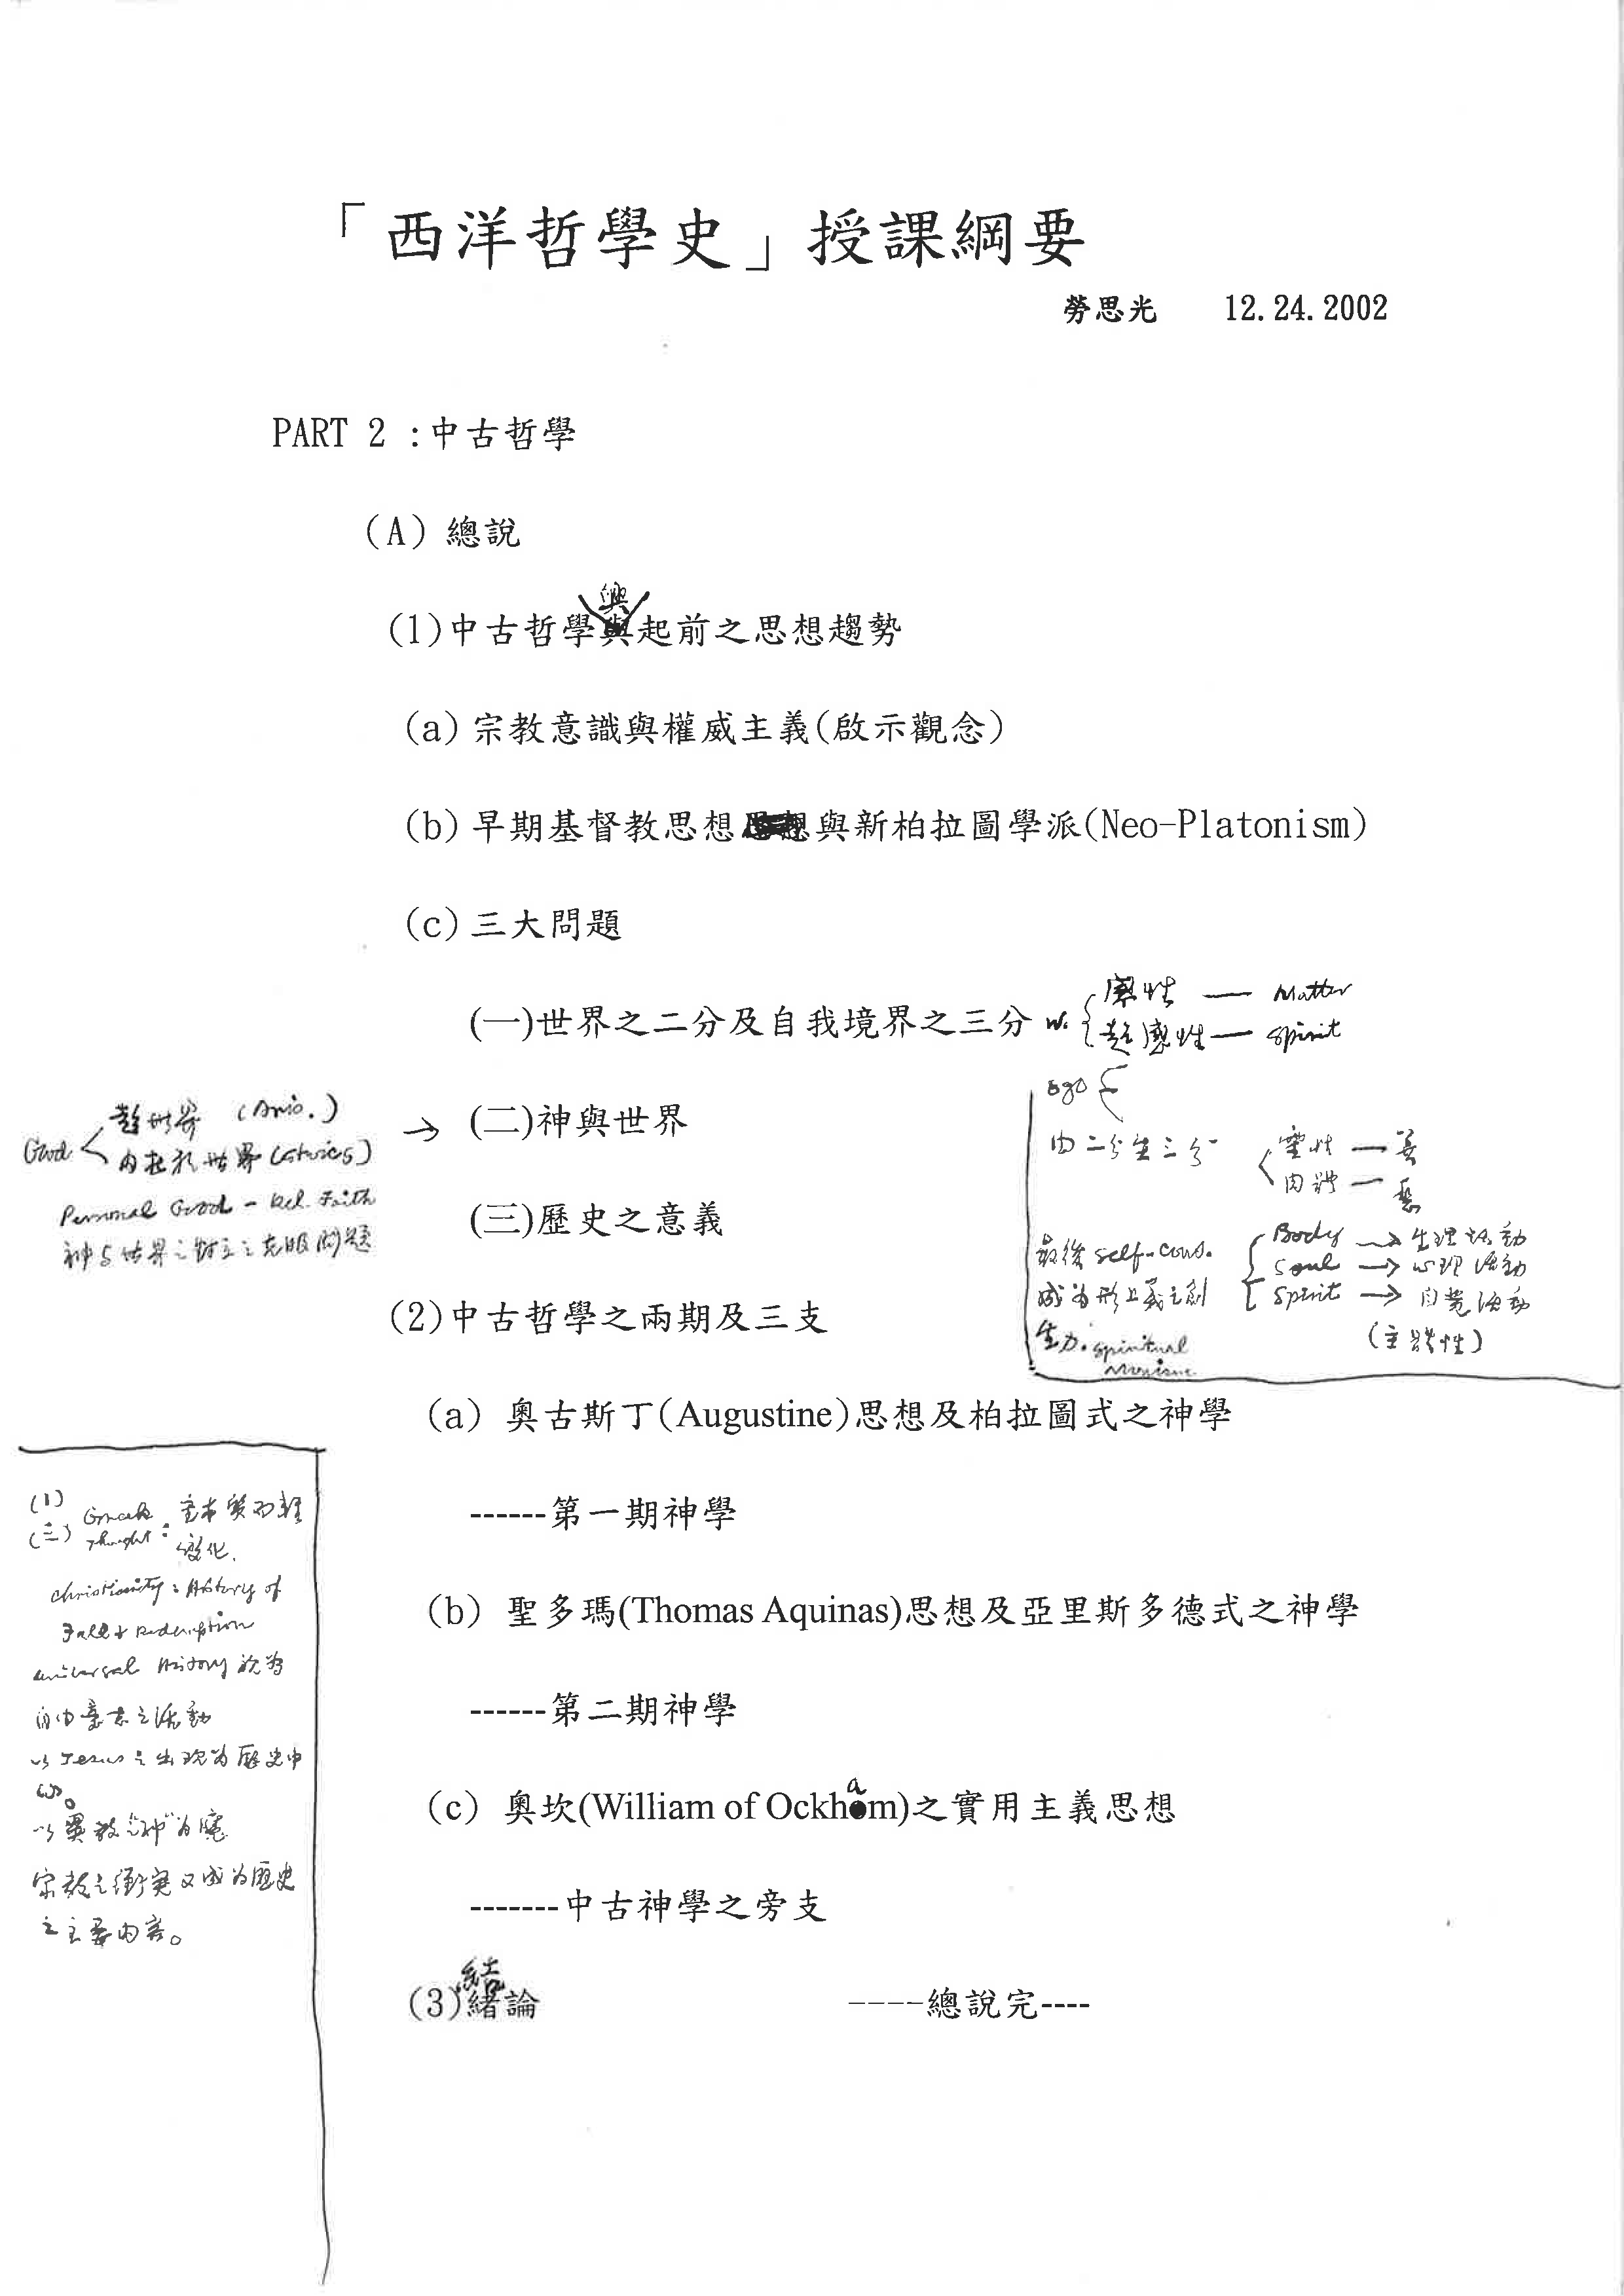 「西洋哲學史」授課綱要
勞思光 12.24.2002
PART 2 :中古哲學
(A) 總說
興
(1)中古哲學起前之思想趨勢
(a)宗教意識與權威主義(啟示觀念)
(b)早期基督教思想與新柏拉圖學派(Neo-Platonism)
(c)三大問題
(一)世界之二分及自我境界之三分
W. 感性 — Matter
超感性 — Spirit
ego
由二分生三分
靈性 — 善
肉體 — 惡
最後 self-cons.
成為形上義之創
生力. spiritual
monism
Body → 生理活動
Soul → 心理活動
Spirit → 自覺活動
(主體性)
→ (二)神與世界
God 超世界 (Aris.)
內在於世界 (Stoics)
Personal God - Rel. Faith
神与世界之對立之克服問題
(三)歷史之意義
(2)中古哲學之兩期及三支
(a) 奧古斯丁(Augustine)思想及柏拉圖式之神學
------第一期神學
(b) 聖多瑪(Thomas Aquinas)思想及亞里斯多德式之神學
------第二期神學
a
(c) 奧坎(William of Ockhm)之實用主義思想
-------中古神學之旁支
結
(3)緒論 ----總說完----
(1)
(三) Greek Thought: 重本質而輕
變化.
Christianity: History of
Fall & Redemption
universal History 視為
自由意志之活動
以 Jesus 之出現為歷史中
心。
以異教之"神"為魔
宗教之衝突又成為歷史
之主要內容。